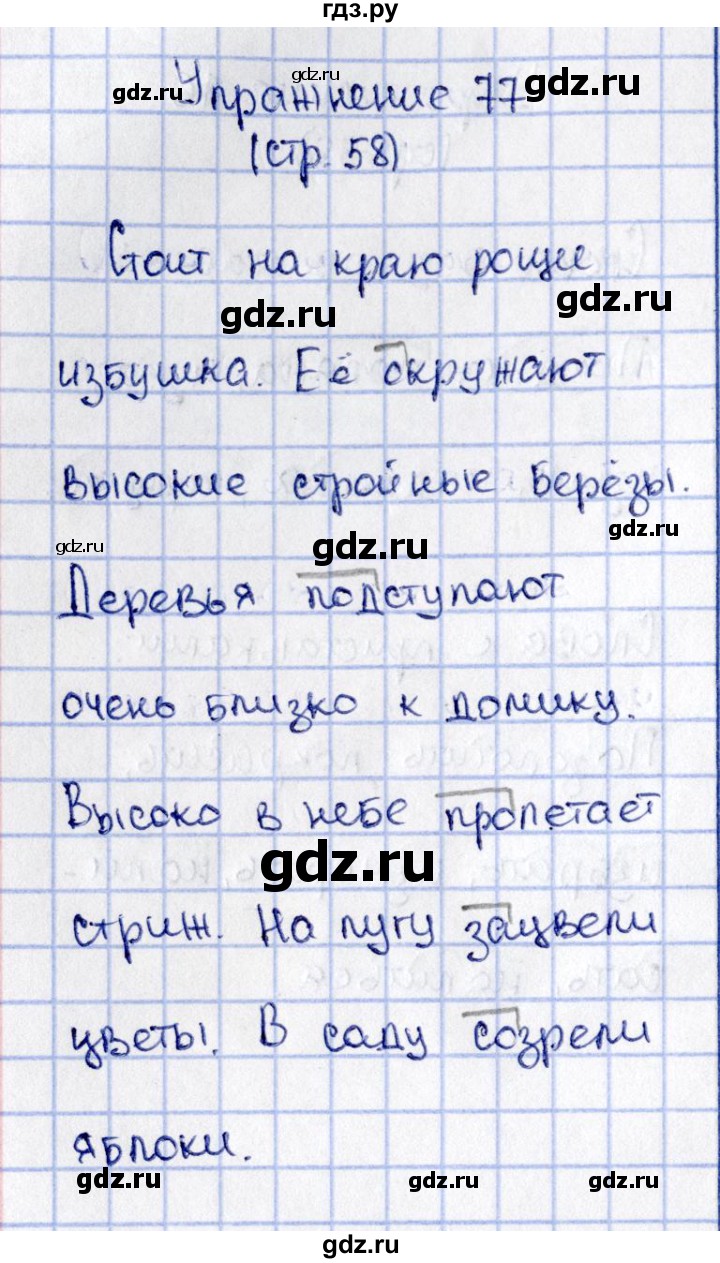 гдз.ру
gdz.ru
Упражнение 77
gdz.ru
gdz.ru
(стр. 58)
Стоит на краю рощи
gdz.ru
gdz.ru
избушка. Её окружают
высокие стройные берёзы.
gdz.ru
gdz.ru
gdz.ru
Деревья подступают
очень близко к домику.
Высоко в небе пролетает
gdz.ru
стриж. На лугу зацвели
цветы. В саду созрели
яблоки.
gdz.ru
gdz.ru
gdz.ru
gdz.ru